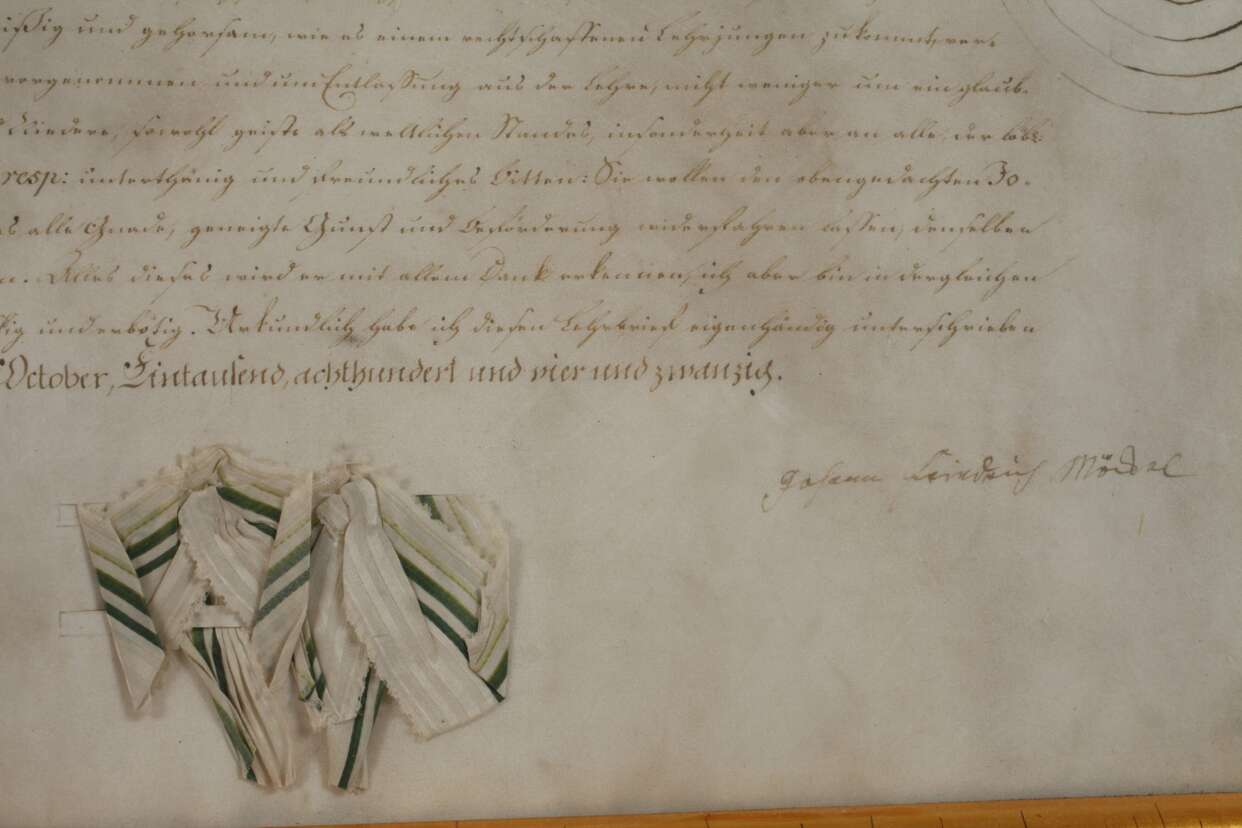 eißig und gehorsam, wie es einem rechtschaffenen Lehrjungen zukommt, ver-
vorgenommen und um Entlassung aus der Lehre, nicht weniger um ein glaub-
Niedere, sowohl geistl als weltlichen Standes, insonderheit aber an alle, der löbl:
resp: unterthänig und freundliches Bitten: Sie wollen den obengedachten Jo-
as alle Gnade, geneigte Gunst und Beförderung widerfahren lassen, denselben
n. Alles dieses wird er mit allem Dank erkennen, ich aber bin in dergleichen
ßig und erbötig. Urkundlich habe ich diesen Lehrbrief eigenhändig unterschrieben
October, Eintausend, achthundert und vier und zwanzich.
Johann Friedrich